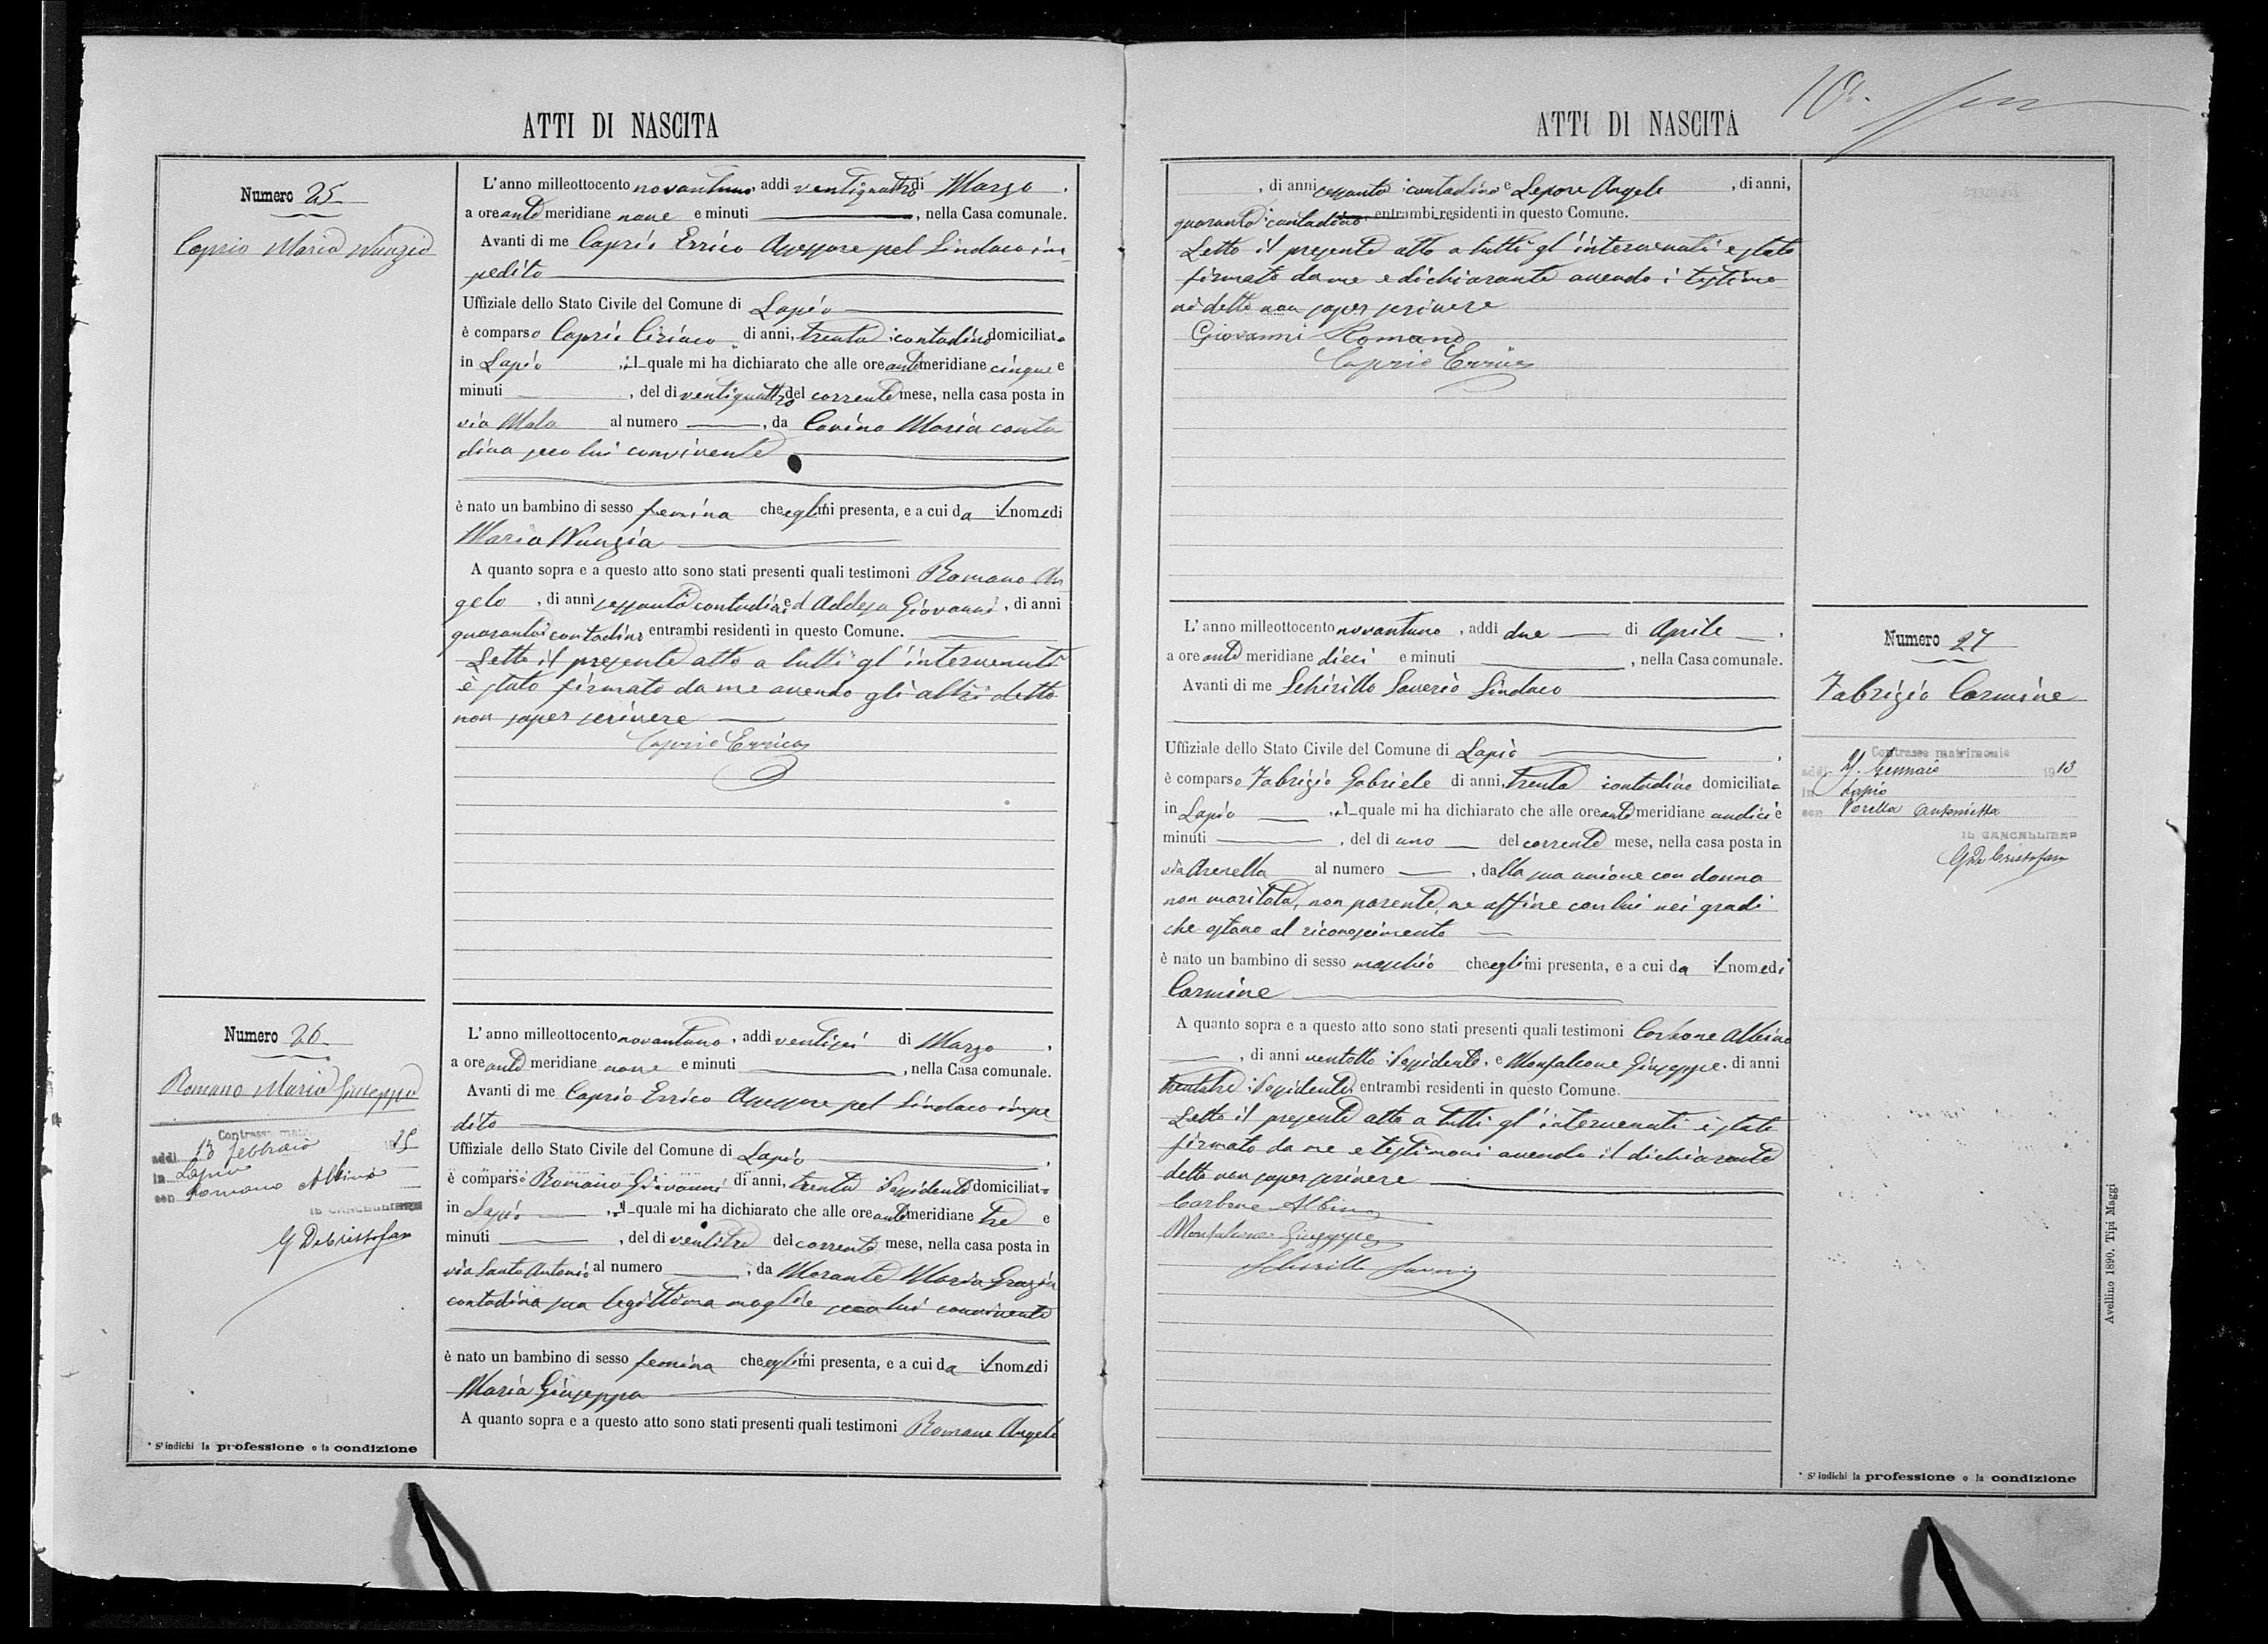 ATTI DI NASCITA
Numero 25
Caprio Maria Nunzia
L'anno milleottocento novantuno addì ventiquattro di Marzo,
a ore ante meridiane nove e minuti, nella Casa comunale.
Avanti di me Caprio Errico Assessore pel Sindaco im
pedito
Uffiziale dello Stato Civile del Comune di Lapio
è comparso Caprio Ciriaco di anni, trenta contadino domiciliato
in Lapio, il quale mi ha dichiarato che alle ore ante meridiane cinque e
minuti, del dì ventiquattro del corrente mese, nella casa posta in
via Mala al numero, da Covino Maria conta
dina seco lui convivente
è nato un bambino di sesso femina che egli mi presenta, e a cui da il nome di
Maria Nunzia
A quanto sopra e a questo atto sono stati presenti quali testimoni Romano An
gelo, di anni sessanta contadino ed Addesa Giovanni, di anni
quaranta contadino entrambi residenti in questo Comune.
Letto il presente atto a tutti gl'intervenuti
è stato firmato da me avendo gli altri detto
non saper scrivere
Caprio Errico
Numero 26
Romano Maria Giuseppa
Contrasse mat
addì 13 febbraio 1925
in Lapio
con Romano Albino
IL CANCELLIERE
G DeCristofaro
L'anno milleottocento novantuno, addì ventisei di Marzo,
a ore ante meridiane nove e minuti, nella Casa comunale.
Avanti di me Caprio Errico Assessore pel Sindaco impe
dito
Uffiziale dello Stato Civile del Comune di Lapio,
è comparso Romano Giovanni di anni, trenta Possidente domiciliato
in Lapio, il quale mi ha dichiarato che alle ore ante meridiane tre e
minuti, del dì ventitre del corrente mese, nella casa posta in
via Santo Antonio al numero, da Morante Maria Grazia
contadina sua legittima moglie seco lui convivente
è nato un bambino di sesso femina che egli mi presenta, e a cui da il nome di
Maria Giuseppa
A quanto sopra e a questo atto sono stati presenti quali testimoni Romano Angelo
* S'indichi la professione o la condizione
10.
ATTI DI NASCITA
, di anni sessanta contadino e Lepore Angelo, di anni,
quaranta contadino entrambi residenti in questo Comune.
Letto il presente atto a tutti gl'intervenuti è stato
firmato da me e dichiarante avendo i testimo
ni detto non saper scrivere
Giovanni Romano
Caprio Errico
L'anno milleottocento novantuno, addì due di Aprile,
a ore ante meridiane dieci e minuti, nella Casa comunale.
Avanti di me Schirillo Saverio Sindaco
Uffiziale dello Stato Civile del Comune di Lapio,
è comparso Fabrizio Gabriele di anni, trenta contadino domiciliato
in Lapio, il quale mi ha dichiarato che alle ore ante meridiane undici e
minuti, del dì uno del corrente mese, nella casa posta in
via Arenella al numero, dalla sua unione con donna
non maritata, non parente, ne affine con lui nei gradi
che ostano al riconoscimento
è nato un bambino di sesso maschio che egli mi presenta, e a cui da il nome di
Carmine
A quanto sopra e a questo atto sono stati presenti quali testimoni Carbone Albino
, di anni ventotto Possidente, e Monfalcone Giuseppe, di anni
trentatre Possidente, entrambi residenti in questo Comune.
Letto il presente atto a tutti gl'intervenuti è stato
firmato da me e testimoni avendo il dichiarante
detto non saper scrivere
Carbone Albino
Monfalcone Giuseppe
Schirillo Saverio
Numero 27
Fabrizio Carmine
Contrasse matrimonio
addì Gennaio 1913
in Lapio
con Antonietta
IL CANCELLIERE
G De Cristofaro
* S'indichi la professione o la condizione
Avellino 1890. Tipi Maggi